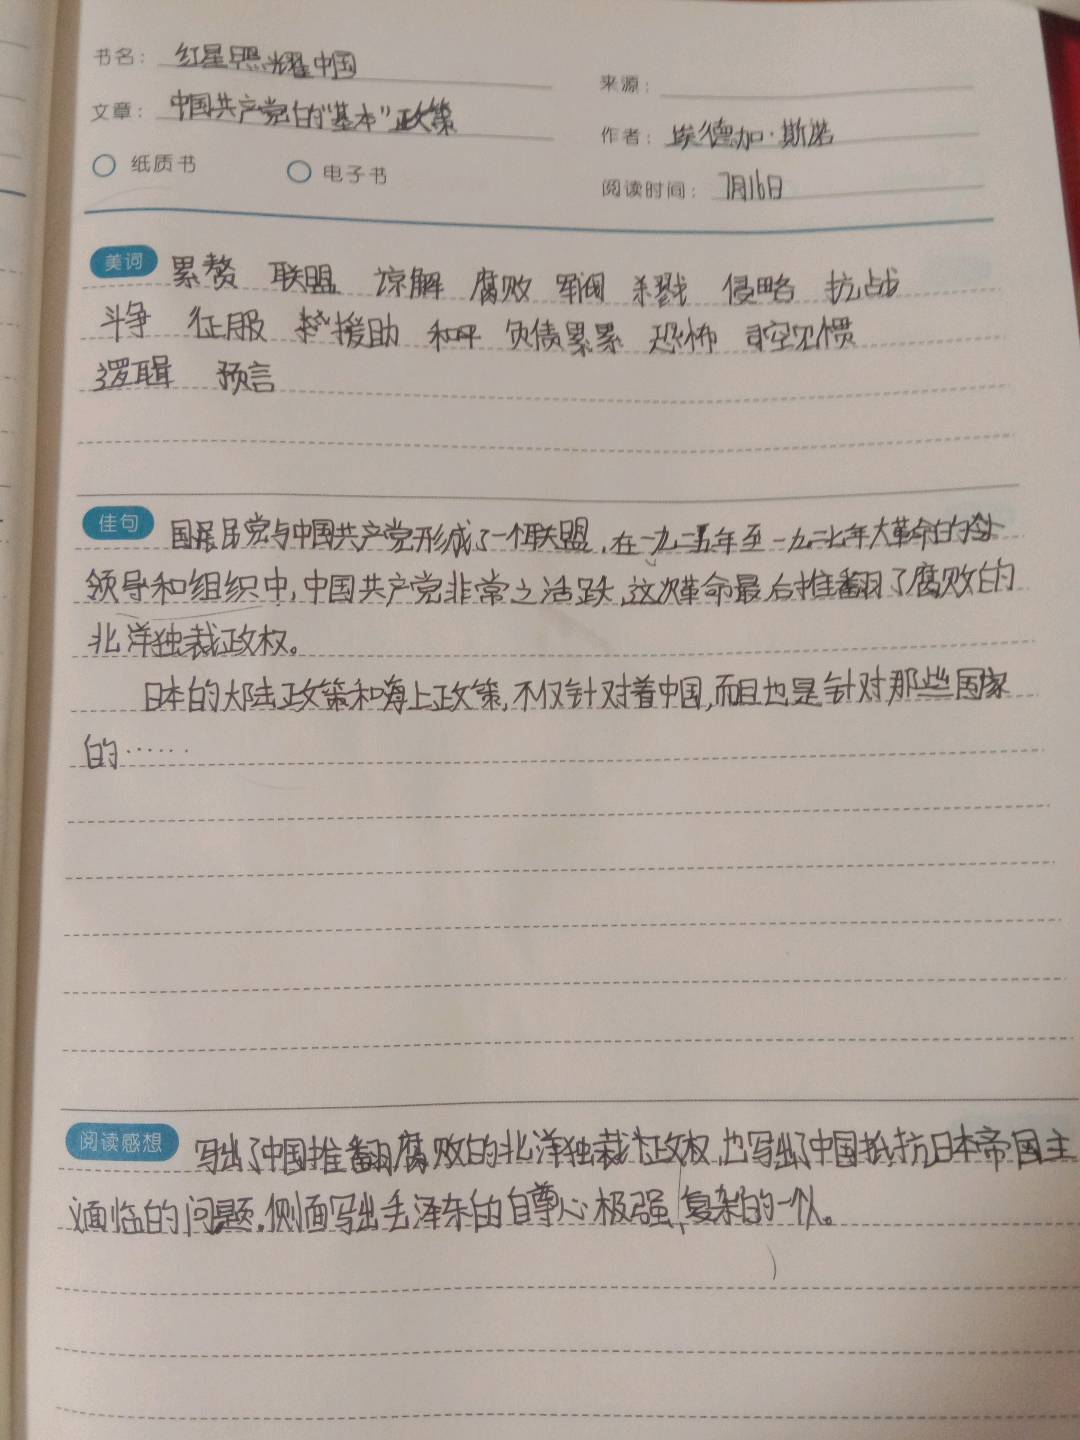 书名: 红星照耀中国
来源:
文章: 中国共产党的"基本"政策
作者: 埃德加·斯诺
纸质书 电子书
阅读时间: 7月16日
美词 累赘 联盟 谅解 腐败 军阀 杀戮 侵略 抗战
斗争 征服 援助 和平 负债累累 恐怖 司空见惯
逻辑 预言
佳句 国民党与中国共产党形成了一个联盟,在一九二五年至一九二七年大革命的
领导和组织中,中国共产党非常之活跃,这次革命最后推翻了腐败的
北洋独裁政权。
日本的大陆政策和海上政策,不仅针对着中国,而且也是针对那些国家
的……
阅读感想 写出了中国推翻腐败的北洋独裁政权,也写出了中国抵抗日本帝国主
义面临的问题,侧面写出毛泽东的自尊心极强,复杂的一个人。